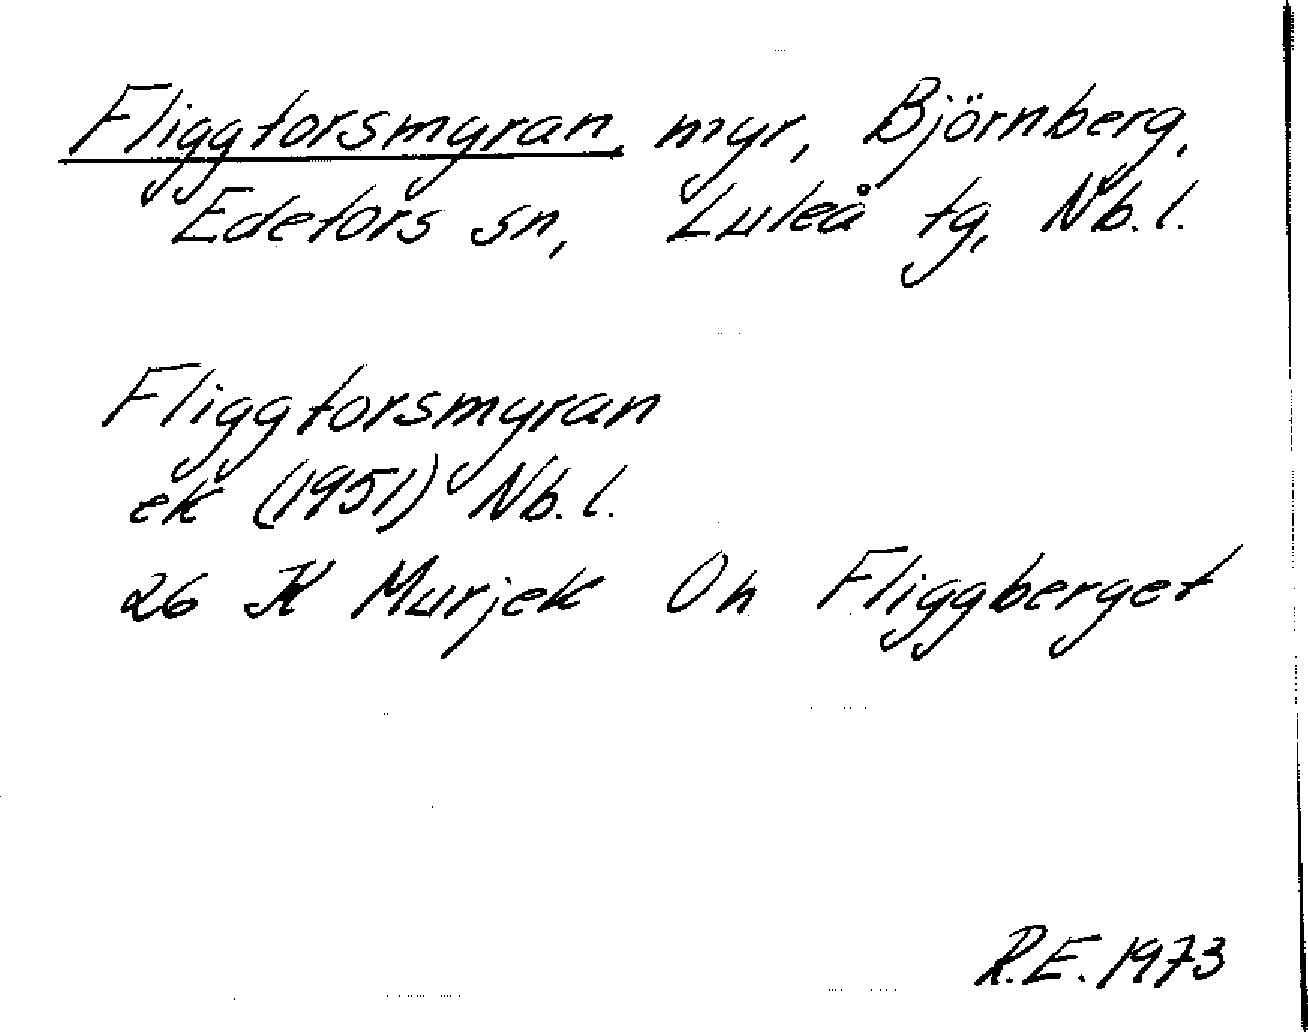 Fliggforsmyran, myr, Björnberg,
Edefors sn, Luleå tg, Nb. l.
Fliggforsmyran
ek (1951) Nb. l.
26 K Murjek Oh Fliggberget
R.E. 1973